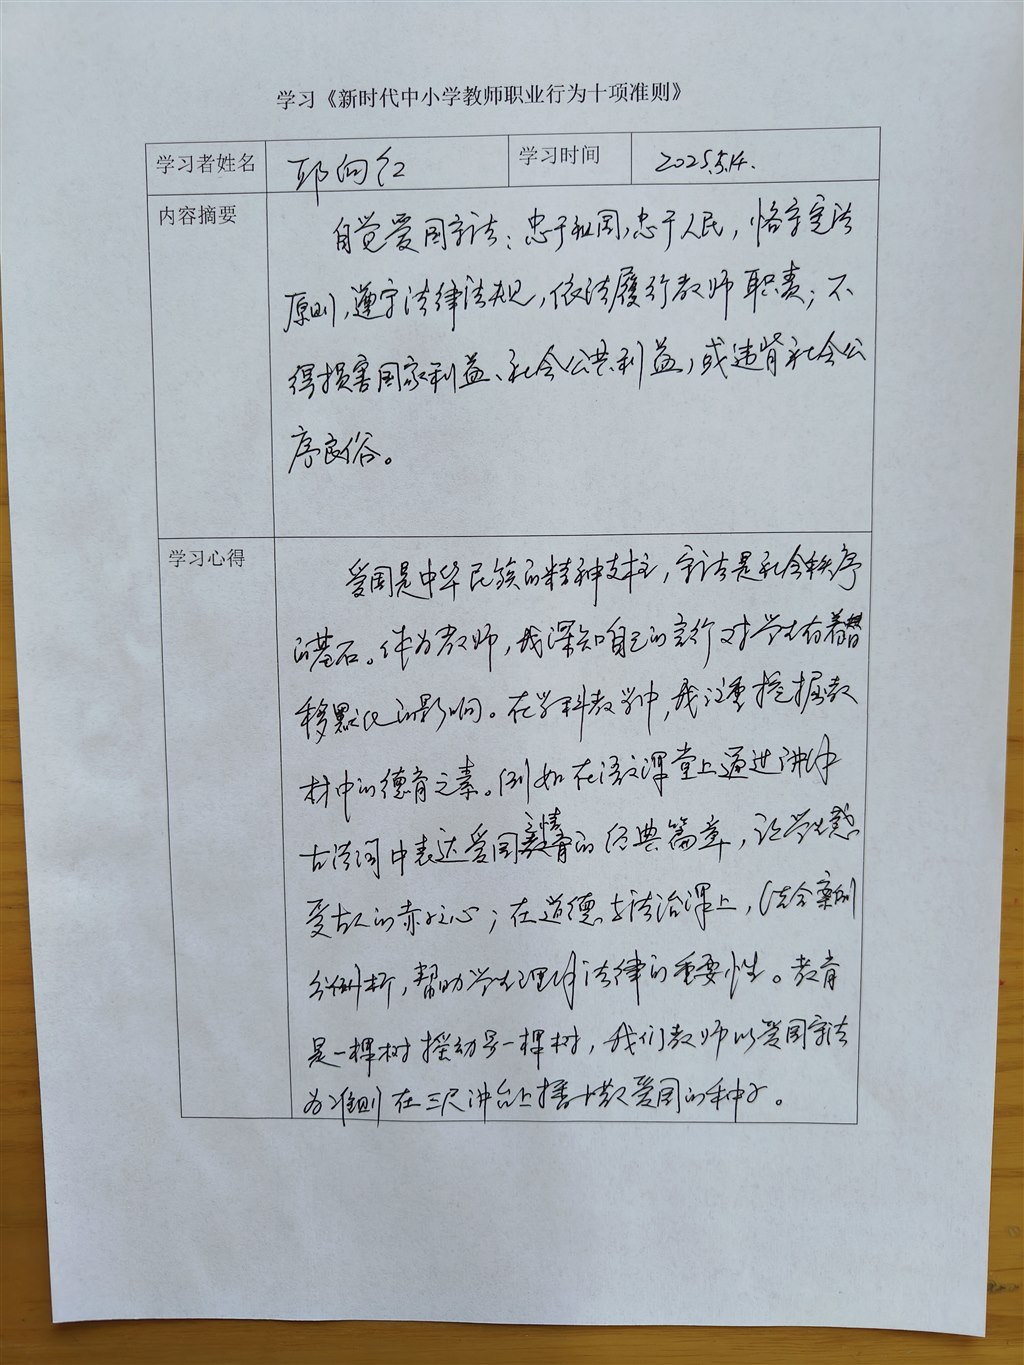 学习《新时代中小学教师职业行为十项准则》
学习者姓名 邱向红 学习时间 2025.5.14.
内容摘要
自觉爱国守法:忠于祖国,忠于人民,恪守宪法
原则,遵守法律法规,依法履行教师职责;不
得损害国家利益、社会公共利益,或违背社会公
序良俗。
学习心得
爱国是中华民族的精神支柱,守法是社会秩序
的基石。作为教师,我深知自己的言行对学生有着潜
移默化的影响。在学科教学中,我注重挖掘教
材中的德育元素。例如在语文课堂上通过讲解
古诗词中表达爱国情的经典篇章,让学生感
受古人的赤子之心;在道德与法治课上,结合案例
分析,帮助学生理解法律的重要性。教育
是一棵树摇动另一棵树,我们教师以爱国守法
为准则在三尺讲台上播撒爱国的种子。